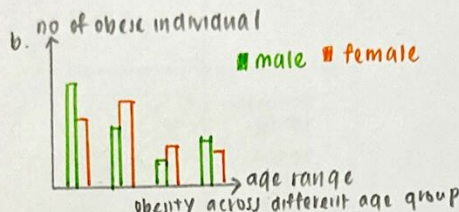 no of obese individual
b.
male female
age range
obenity across different age group